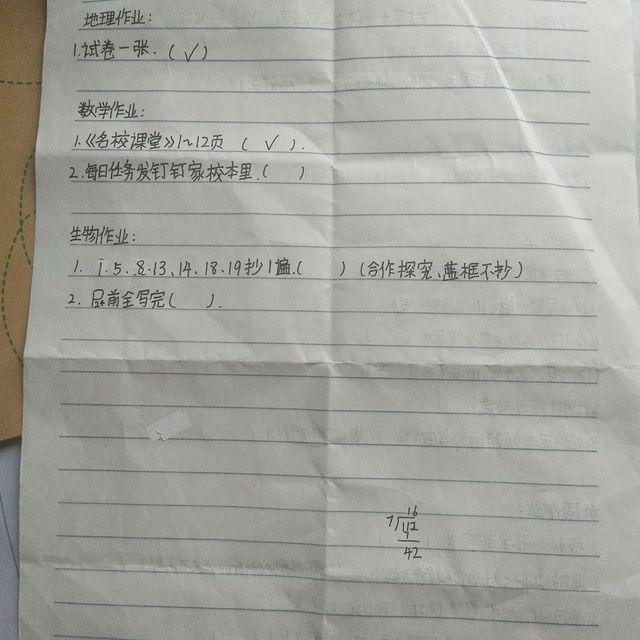 地理作业:
1.试卷一张.(√)
数学作业:
1.《名校课堂》1~12页 ( √ ).
2.每日任务发钉钉家校本里.( )
生物作业:
1. 1.5.8.13、14、18、19抄1遍.( )(合作探究、蓝框不抄)
2. 目前全写完( ).
16
7
42
42